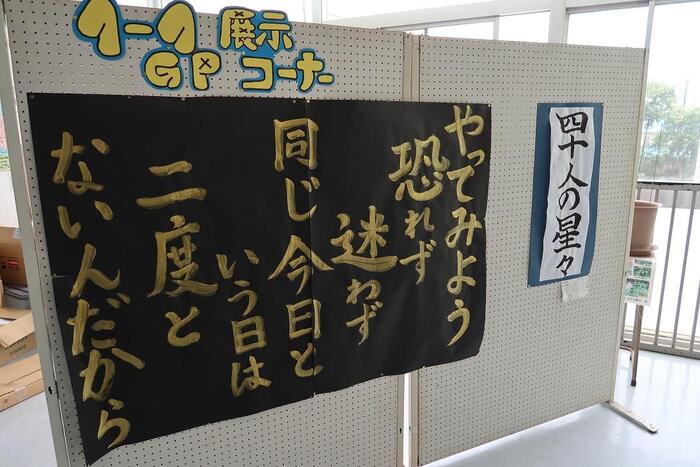 イークイ 展示
GP コーナー
やってみよう
恐れず
迷わず
同じ今日と
いう日は
二度と
ないんだから
四十人の星々